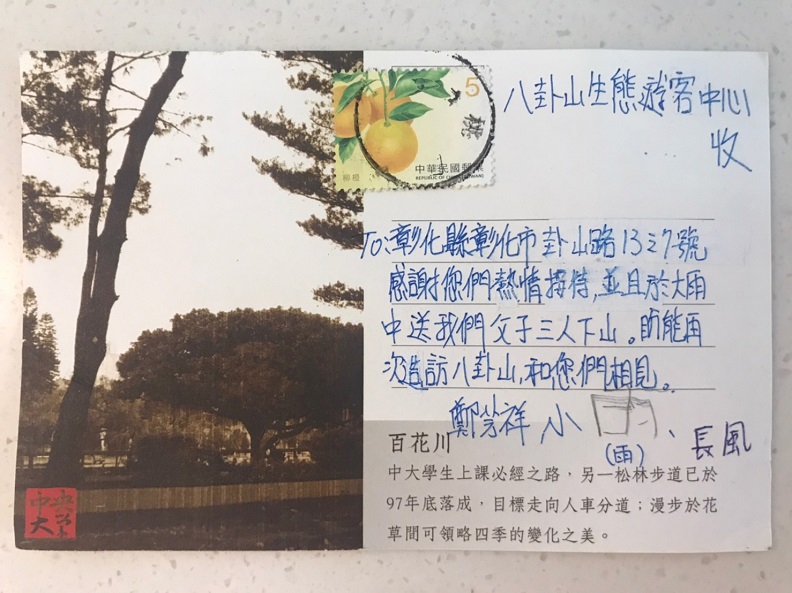 5
柳橙
中華民國郵票
REPUBLIC OF CHINA (TAIWAN)
八卦山生態遊客中心
收
To:彰化縣彰化市卦山路13之7號
感謝您們熱情招待,並且於大雨
中送我們父子三人下山。盼能再
次造訪八卦山,和您們相見。
鄭 祥 小 、長風
(雨)
百花川
中大學生上課必經之路,另一松林步道已於
97年底落成,目標走向人車分道;漫步於花
草間可領略四季的變化之美。
中央
大